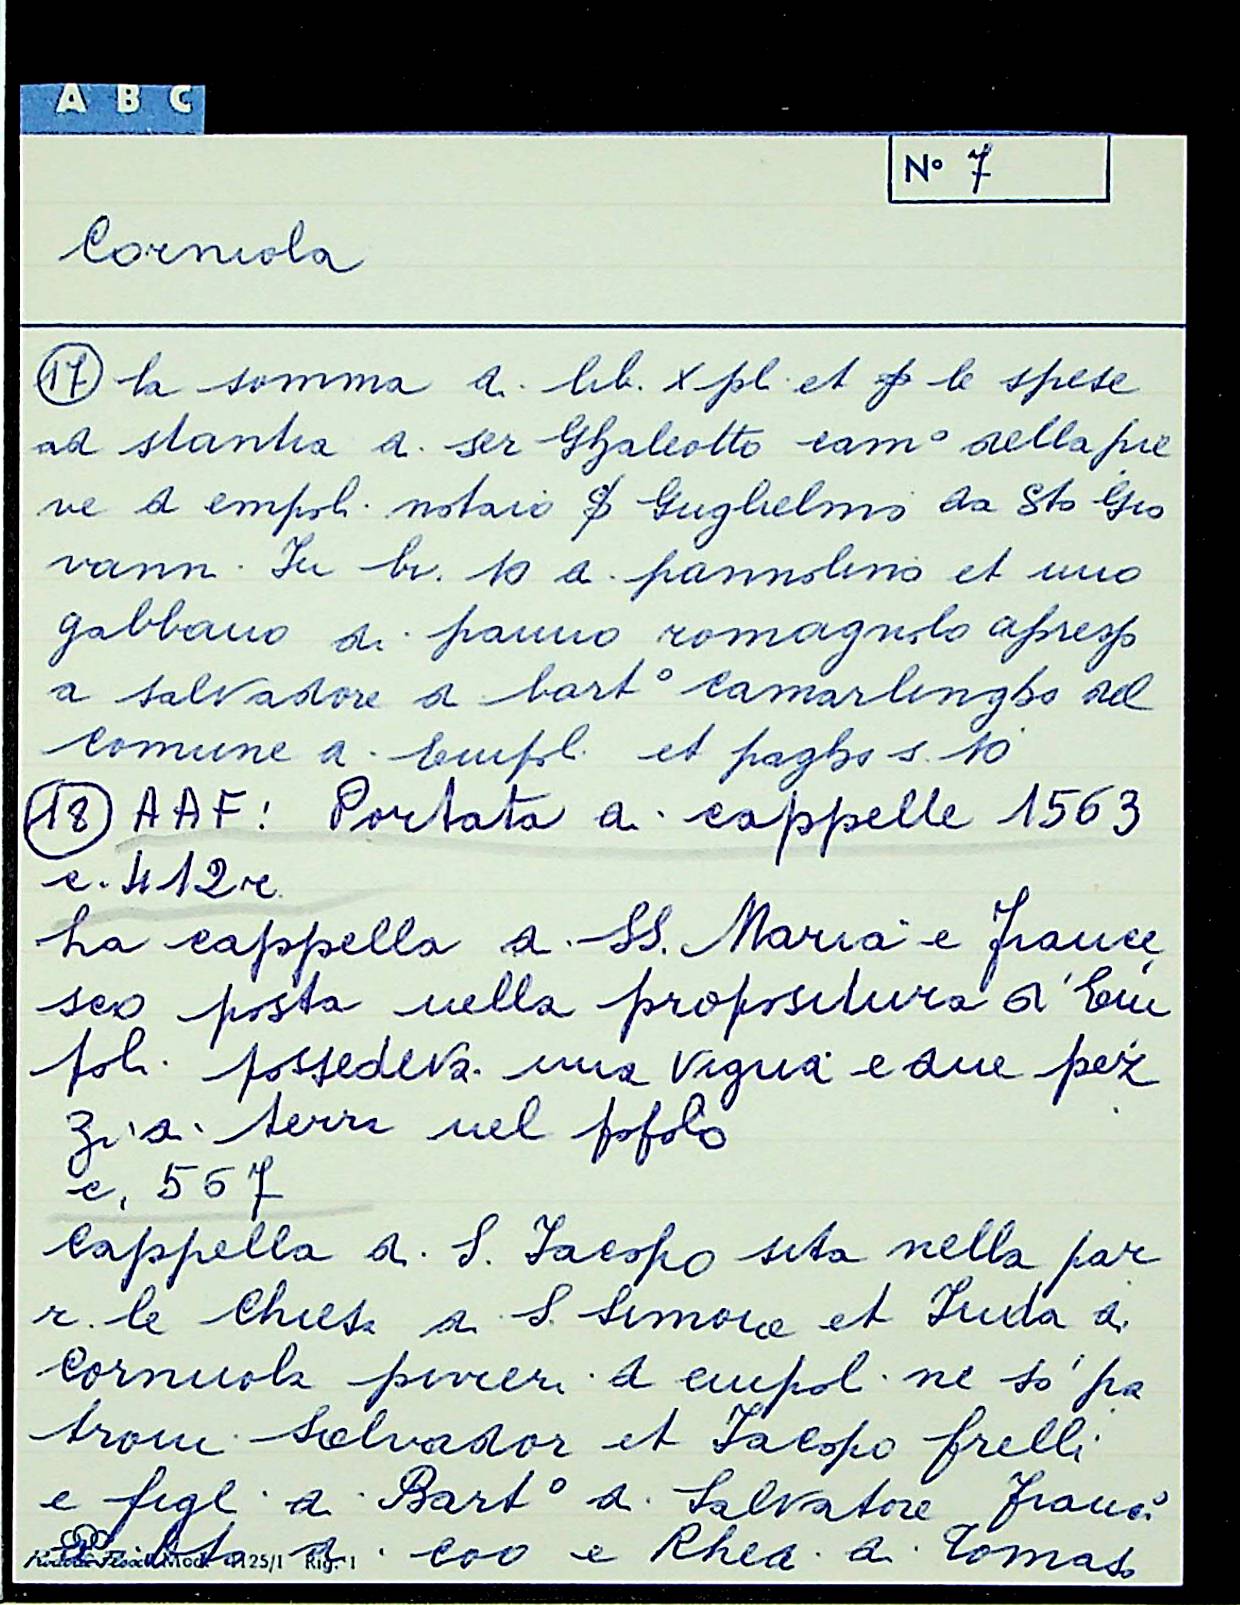 A B C
N° 7
Corniola
17 la somma di lib. X pli et p le spese
ad stantia di ser Ghaleotto cam° della pie
ve di empoli notaio p Guglielmo da Sto Gio
vanni. In br. 10 di pannolino et uno
gabbano di panno romagnolo apresso
a salvadore di bart° camarlingho del
comune di Empoli et pagho s. 10
18 AAF: Portata di cappelle 1563
c. 412r
la cappella di SS. Maria e France
sco posta nella propositura d'Em
poli possedeva una vigna e due pez
zi di terra nel popolo
c. 567
Cappella di S. Jacopo sita nella par
r. le Chiesa di S. Simone et Juda di
Corniola pivieri di empoli ne so' pa
troni Salvador et Jacopo frelli
e figli di Bart° di Salvatore Franc°
di coo e Rhea di Tomaso
Mod. 4125/1 Rig. 1